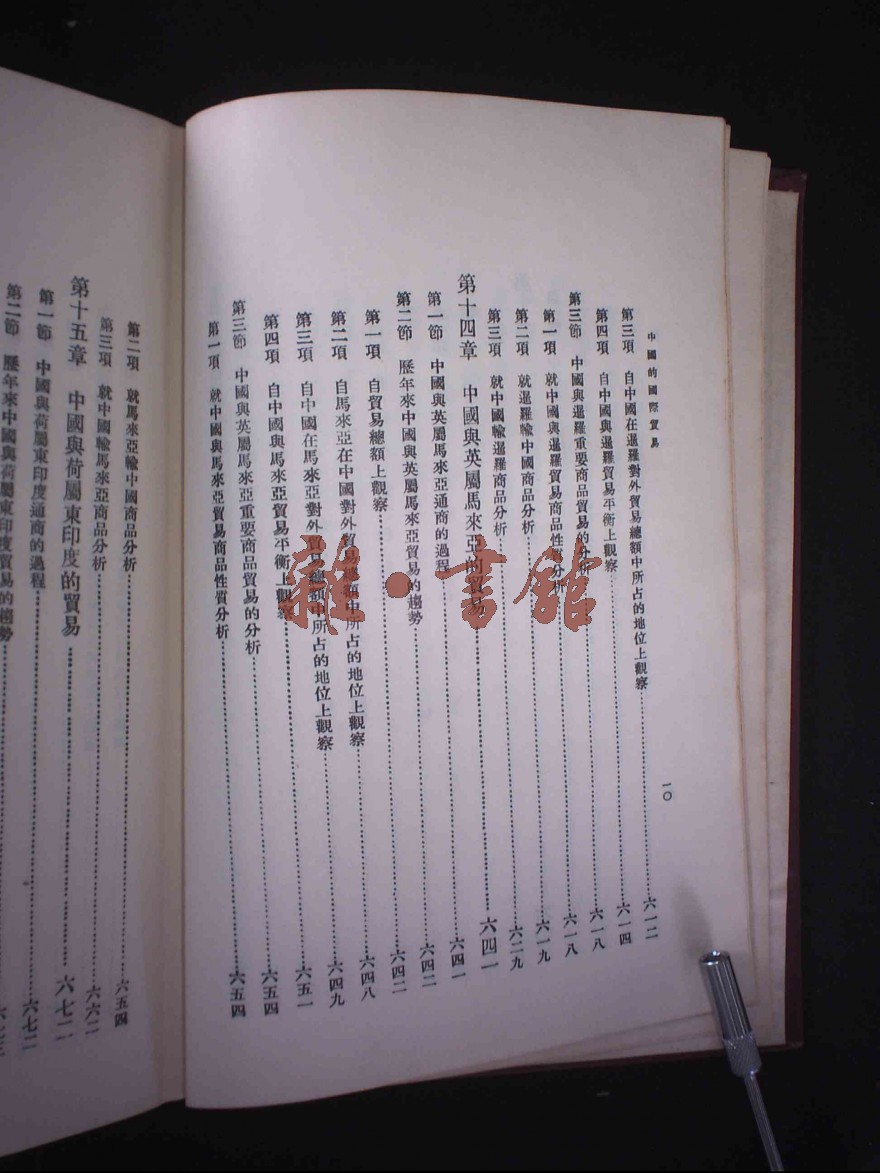 中國的國際貿易 一〇
第三項 自中國在暹羅對外貿易總額中所占的地位上觀察……六一二
第四項 自中國與暹羅貿易平衡上觀察……六一四
第三節 中國與暹羅重要商品貿易的分析……六一八
第一項 就中國與暹羅貿易商品性質分析……六一八
第二項 就暹羅輸中國商品分析……六一九
第三項 就中國輸暹羅商品分析……六二九
第十四章 中國與英屬馬來亞的貿易……六四一
第一節 中國與英屬馬來亞通商的過程……六四一
第二節 歷年來中國與英屬馬來亞貿易的趨勢……六四二
第一項 自貿易總額上觀察……六四二
第二項 自馬來亞在中國對外貿易總額中所占的地位上觀察……六四八
第三項 自中國在馬來亞對外貿易總額中所占的地位上觀察……六四九
第四項 自中國與馬來亞貿易平衡上觀察……六五一
第三節 中國與英屬馬來亞重要商品貿易的分析……六五四
第一項 就中國與馬來亞貿易商品性質分析……六五四
第二項 就馬來亞輸中國商品分析……六五四
第三項 就中國輸馬來亞商品分析……六六二
第十五章 中國與荷屬東印度的貿易……六七二
第一節 中國與荷屬東印度通商的過程……六七二
第二節 歷年來中國與荷屬東印度貿易的趨勢
雜·書館